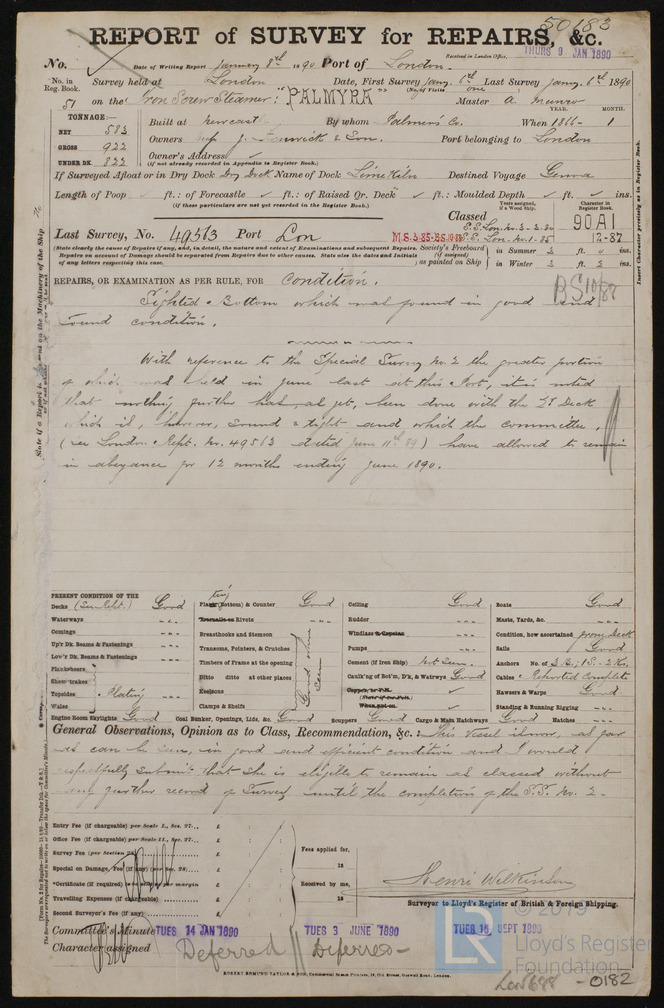 50183
REPORT of SURVEY for REPAIRS, &c.
Received in London Office, THURS 9 JAN 1890
No. Date of Writing Report January 8th 1890 Port of London.
No. in Reg. Book. Survey held at London Date, First Survey Jany. 6th Last Survey Jany. 6th 1890
(No. of Visits one)
51 on the Iron Screw Steamer: "PALMYRA" Master A. Munro
TONNAGE:— YEAR. MONTH.
NET 583 Built at Newcastle By whom Palmers Co. When 1866- 1
GROSS 922 Owners J. Fenwick & Son. Port belonging to London
UNDER DK. 822 Owner's Address
(if not already recorded in Appendix to Register Book.)
If Surveyed Afloat or in Dry Dock Dry Dock Name of Dock Limekiln Destined Voyage Genoa
Length of Poop ft.: of Forecastle ft.: of Raised Qr. Deck ft.: Moulded Depth ft. ins.
(if these particulars are not yet recorded in the Register Book.)
Years assigned, if a Wood Ship. Character in Register Book.
Classed 90A1
S.S. Lon. No. 3-3-80
Last Survey, No. 49513 Port Lon M.S. 3.85-B.S. 10.88 S.S. Lon. No. 1-85 12-87
(State clearly the cause of Repairs if any, and, in detail, the nature and extent of Examinations and subsequent Repairs.
Repairs on account of Damage should be separated from Repairs due to other causes. State also the dates and Initials
of any letters respecting this case.
Society's Freeboard (if assigned) as painted on Ship in Summer ft. ins.
in Winter ft. ins.
REPAIRS, OR EXAMINATION AS PER RULE, FOR Condition.
BS 10/88
Sighted Bottom which was found in good and
sound condition.
With reference to the Special Survey No. 2 the greater portion
of which was held in June last at this Port, it is noted
that nothing further has, as yet, been done with the Ur Deck
which is, however, sound & tight and which the committee,
(see London Rept. No. 49513 dated June 11th 89) have allowed to remain
in abeyance for 12 months ending June 1890.
PRESENT CONDITION OF THE
Decks Good
Waterways
Comings
Up'r Dk. Beams & Fastenings
Low'r Dk. Beams & Fastenings
Planksheers
Sheer-strakes
Topsides Plating
Wales
Engine Room Skylights Good
Plating (Bottom) & Counter Good
Treenails or Rivets
Breasthooks and Stemson
Transoms, Pointers, & Crutches
Timbers of Frame at the opening
Ditto ditto at other places
Keelsons
Clamps & Shelfs
Good where seen
Coal Bunker, Openings, Lids, &c. Good
Ceiling Good
Rudder
Windlass & Capstan
Pumps
Cement (if Iron Ship) Not Seen
Caulk'ng of Bot'm, D'k, & Watrwys Good
Copper or Y.M.
When put on
Scuppers Good Cargo & Main Hatchways Good Hatches
Boats Good
Masts, Yards, &c.
Condition, how ascertained from deck
Sails Good
Anchors No. of 3 Br; 1 S.- 2 Ks.
Cables Reported Complete
Hawsers & Warps Good
Standing & Running Rigging
General Observations, Opinion as to Class, Recommendation, &c.: This Vessel is now, as far
as can be seen, in good and efficient condition and I would
respectfully submit that she is eligible to remain as classed without
any further record of Survey until the completion of the S.S. No. 2-
Entry Fee (if chargeable) per Scale I., Sec. 27... £
Office Fee (if chargeable) per Scale II., Sec. 27... £
Survey Fee (per Section 28) £
Special on Damage, Fee (if any) (per Sec. 28) £
Certificate (if required) as per margin £
Travelling Expenses (if chargeable) £
Second Surveyor's Fee (if any) £
Fees applied for, 18
Received by me, 18
Henri Wilkinson
Surveyor to Lloyd's Register of British & Foreign Shipping.
Committee's Minute TUES 14 JAN 1890 TUES 3 JUNE 1890 TUES 16 SEPT 1890
Character assigned Deferred Deferred-
ROBERT EDMUND TAYLOR & SON, Commercial Steam Printers, 19, Old Street, Goswell Road, London.
© 2019
LR
Lloyd's Register
Foundation
LON698-0182
Insert Character precisely as in Register Book.